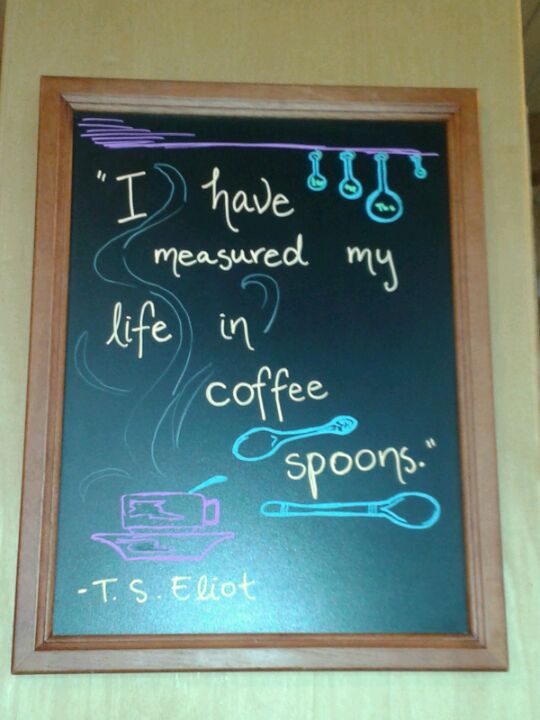 "I have
measured my
life in
coffee
spoons."
-T. S. Eliot